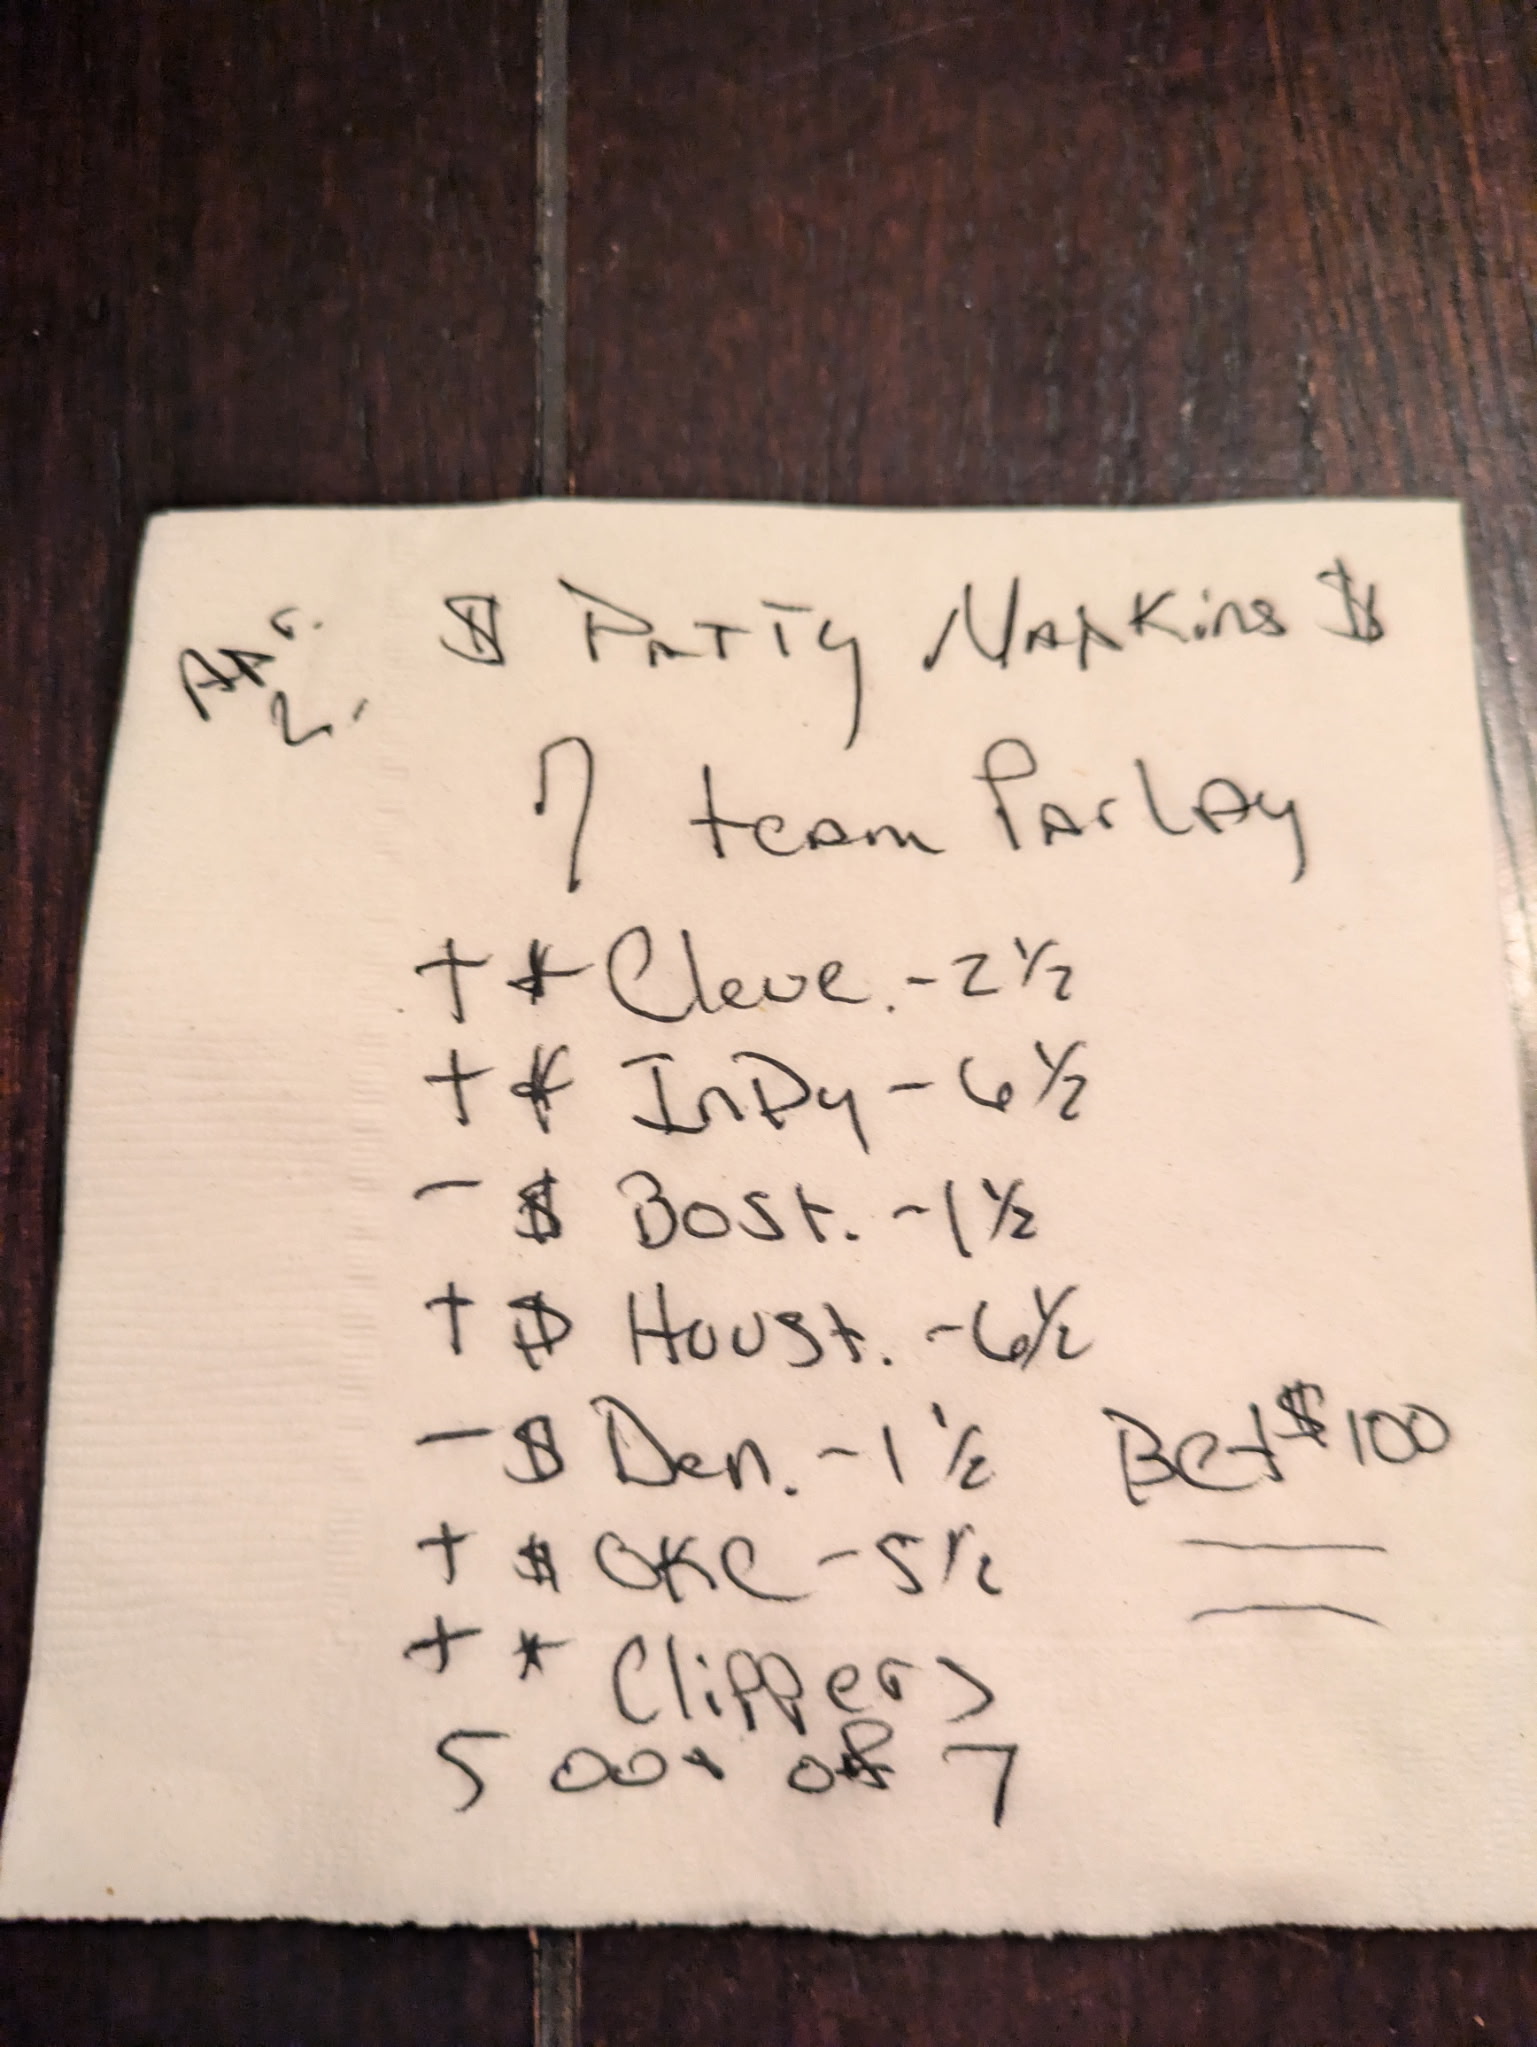 Apr. 2.
$ Patty Napkins $
7 team Parlay
+ * Cleve. -2 1/2
+ * Indy - 6 1/2
- $ Bost. -1 1/2
+ $ Houst. -6 1/2
- $ Den. -1 1/2 Bet $100
+ $ OKC -5 1/2
+ * Clippers
5 out of 7